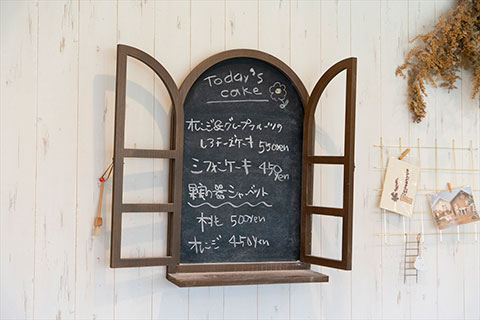 Today's
cake
オレンジ&グレープフルーツの
レアチーズケーキ 550yen
シフォンケーキ 450yen
果実の器シャーベット
桃 500yen
オレンジ 450yen